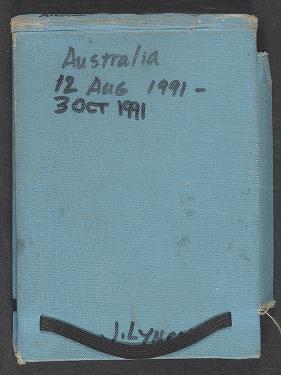 Australia
12 AUG 1991 -
3 OCT 1991